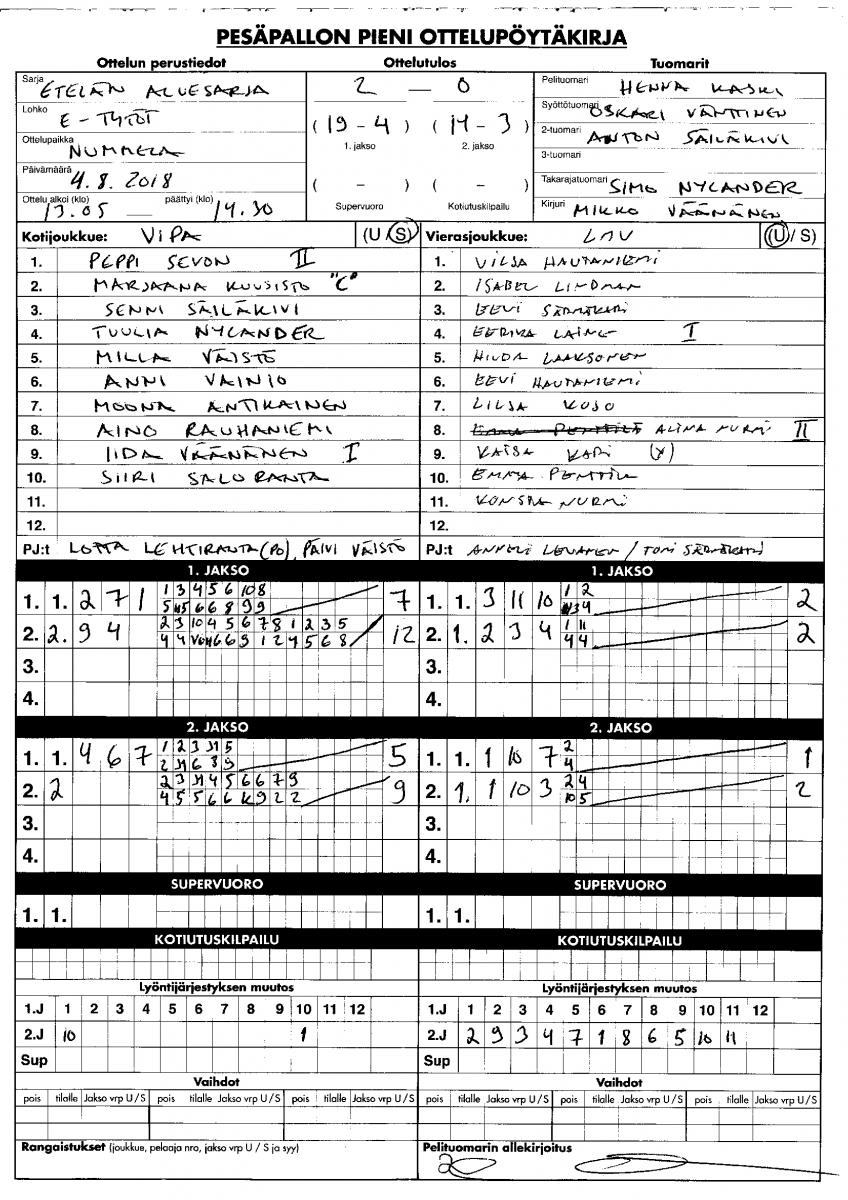 PESÄPALLON PIENI OTTELUPÖYTÄKIRJA
Ottelun perustiedot
Sarja ETELÄN ALUESARJA
Lohko E - TYTÖT
Ottelupaikka NUMMELA
Päivämäärä 4.8.2018
Ottelu alkoi (klo) 13.05 — päättyi (klo) 14.30
Ottelutulos
2 — 0
(19 - 4) (14 - 3)
1. jakso 2. jakso
( - ) ( - )
Supervuoro Kotiutuskilpailu
Tuomarit
Pelituomari HENNA KASKI
Syöttötuomari OSKARI VÄNTTINEN
2-tuomari ANTON SÄILÄKIVI
3-tuomari
Takarajatuomari SIMO NYLANDER
Kirjuri MIKKO VÄÄNÄNEN
Kotijoukkue: ViPA (U / S)
1. PEPPI SEVON II
2. MARJAANA KUUSISTO "C"
3. SENNI SÄILÄKIVI
4. TUULIA NYLANDER
5. MILLA VÄISTÖ
6. ANNI VAINIO
7. MOONA ANTIKAINEN
8. AINO RAUHANIEMI
9. IIDA VÄÄNÄNEN I
10. SIIRI SALORANTA
11.
12.
PJ:t LOTTA LEHTIRANTA (PO), PÄIVI VÄISTÖ
Vierasjoukkue: LMV (U / S)
1. VILJA HAUTANIEMI
2. ISABEL LINDMAN
3. EEVI SÄRMÄKARI
4. EERIKA LAINE I
5. HILDA LAAKSONEN
6. EEVI HAUTANIEMI
7. LILJA KUJO
8. ALINA NURMI II
9. KAISA KARI (X)
10. EMMA PENTTILÄ
11. NURMI
12.
PJ:t ANNELI LEVANEN / TOMI SÄRMÄKARI
1. JAKSO
1. 1. 2 7 1 1 3 4 5 6 10 8 7
2. 2. 9 4 2 3 10 4 5 6 7 8 1 2 3 5 12
3.
4.
1. JAKSO
1. 1. 3 11 10 1 2 2
2. 1. 2 3 4 1 11 2
4 4
3.
4.
2. JAKSO
1. 1. 4 6 7 5
2. 2 9
3.
4.
2. JAKSO
1. 1. 1 10 7 2 1
4
2. 1. 1 10 3 2 4 2
10 5
3.
4.
SUPERVUORO
1. 1.
SUPERVUORO
1. 1.
KOTIUTUSKILPAILU
KOTIUTUSKILPAILU
Lyöntijärjestyksen muutos
1.J 1 2 3 4 5 6 7 8 9 10 11 12
2.J 10 1
Sup
Lyöntijärjestyksen muutos
1.J 1 2 3 4 5 6 7 8 9 10 11 12
2.J 2 9 3 4 7 1 8 6 5 10 11
Sup
Vaihdot
pois tilalle Jakso vrp U / S pois tilalle Jakso vrp U / S pois tilalle Jakso vrp U / S
Vaihdot
pois tilalle Jakso vrp U / S pois tilalle Jakso vrp U / S pois tilalle Jakso vrp U / S
Rangaistukset (joukkue, pelaaja nro, jakso vrp U / S ja syy)
Pelituomarin allekirjoitus